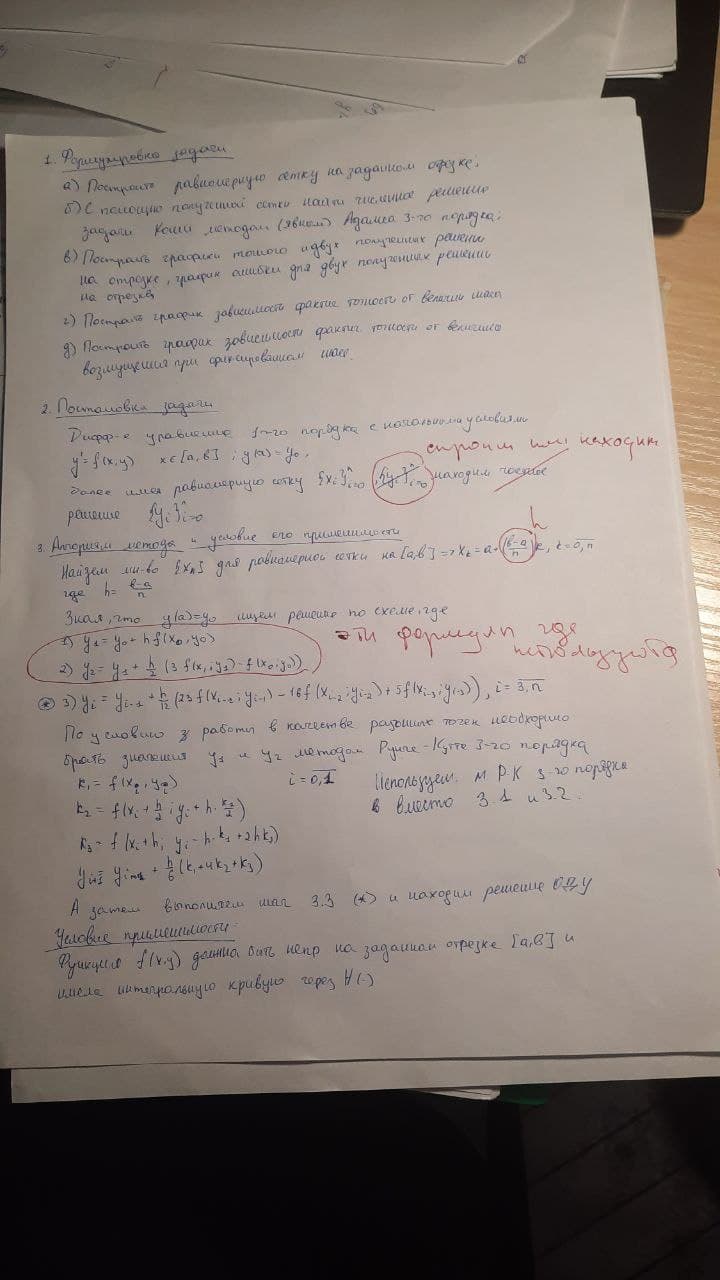 1. Формулировка задачи
а) Построить равномерную сетку на заданном отрезке;
б) С помощью полученной сетки найти численное решение
задачи Коши методом (явном) Адамса 3-го порядка;
в) Построить графики точного и двух полученных решений
на отрезке, график ошибки для двух полученных решений
на отрезке
г) Построить график зависимости фактич точности от величин шага
д) Построить график зависимости фактич точности от величины
возмущения при фиксированном шаге.
2. Постановка задачи
Дифф-е уравнение 1-го порядка с начальными условиями
y' = f(x,y) x∈[a,b] ; y(a)=y₀.
строим или находим
Более имея равномерную сетку {xᵢ}ⁿᵢ₌₀ {yᵢ}ⁿᵢ₌₀ находим
решение {yᵢ}ⁿᵢ₌₀
h
3. Алгоритм метода и условие его применимости
Найдем мн-во {xₙ} для равномерной сетки на [a,b] => xₖ = a + (b-a)/n k, k=0,n
где h= (b-a)/n
Зная, что y(a)=y₀ ищем решение по схеме, где
1) y₁ = y₀ + h f(x₀, y₀)
эти формулы где используются
2) y₂ = y₁ + h/2 (3 f(x₁; y₁) - f(x₀; y₀))
(*) 3) yᵢ = yᵢ₋₁ + h/12 (23 f(xᵢ₋₁; yᵢ₋₁) - 16 f(xᵢ₋₂; yᵢ₋₂) + 5 f(xᵢ₋₃; yᵢ₋₃)), i = 3,n
По условию работы в качестве разгонных точек необходимо
брать значения y₁ и y₂ методом Рунге-Кутте 3-го порядка
k₁ = f(xᵢ, yᵢ) i = 0,1 Используем м Р.К 3-го порядка
k₂ = f(xᵢ + h/2; yᵢ + h· k₁/2) в вместо 3.1 и 3.2.
k₃ = f(xᵢ + h; yᵢ - h·k₁ + 2hk₂)
yᵢ₊₁ = + h/6 (k₁ + 4k₂ + k₃)
А затем выполняем шаг 3.3 (*) и находим решение ОДУ
Условие применимости:
Функция f(x,y) должна быть непр на заданном отрезке [a,b] и
имела интегральную кривую через ∀(·)